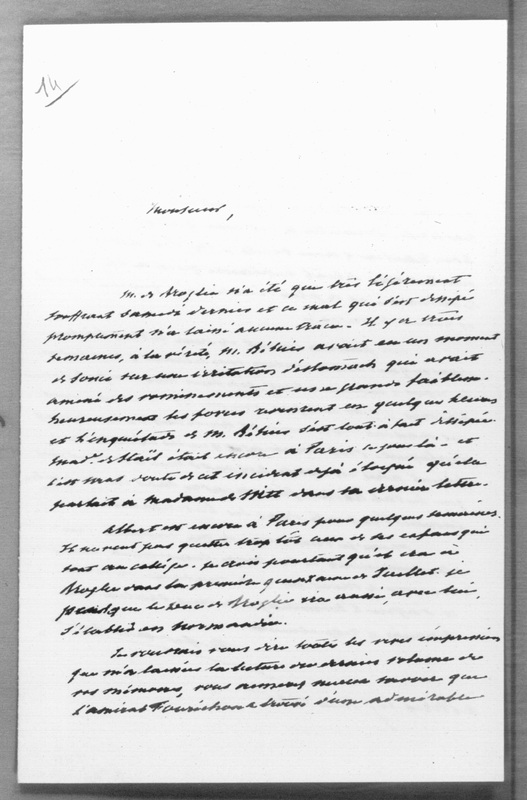 14
Monsieur,
M. de Broglie n'a été que très légèrement
souffrant samedi dernier et ce mal qui s'est dissipé
promptement n'a laissé aucune trace. Il y a trois
semaines, à la vérité, M. Béhier avait eu un moment
de souci sur une irritation d'estomach qui avait
amené des vomissements et une grande faiblesse.
heureusement les forces revinrent en quelques heures
et l'inquiétude de M. Béhier s'est tout à fait dissipée.
Mad. de Staël était encore à Paris ce jour là et
c'est sans doute de cet incident déjà éloigné qu'elle
parlait à Madame de Witt dans sa dernière lettre.
Albert est encore à Paris pour quelques semaines.
Il ne veut pas quitter trop tôt ceux de ses enfans qui
sont au collège. Je crois pourtant qu'il ira à
Broglie dans la première quinzaine de Juillet. Je
que le Duc de Broglie ira aussi, avec lui,
s'établir en Normandie.
Je voudrais vous dire toutes les vives impressions
que m'a laissées la lecture du dernier volume de
vos mémoires, vous aimerez mieux savoir que
l'amiral Fourichon a trouvé d'une admirable